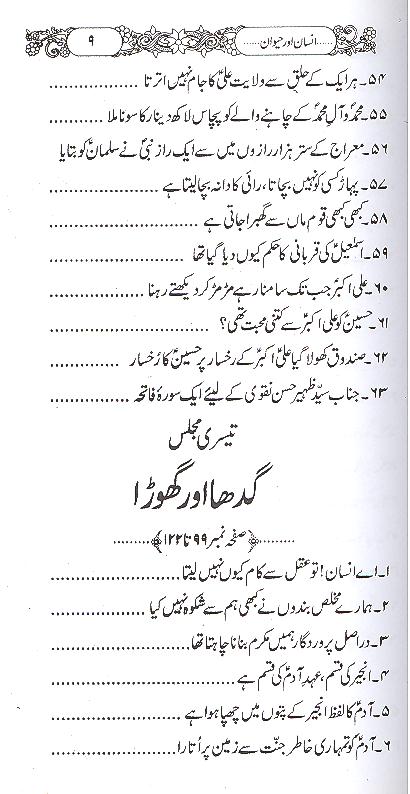 ۹
......انسان اور حیوان......
۵۴۔ہر ایک کے حلق سے ولایت علیؑ کا جام نہیں اترتا ................
۵۵۔محمدؐ و آلِ محمدؐ کے چاہنے والے کو پچاس لاکھ دینار کا سونا ملا ............
۵۶۔معراج کے ستر ہزار رازوں میں سے ایک راز نبیؐ نے سلمانؓ کو بتایا
۵۷۔پہاڑ کسی کو نہیں بچاتا، رائی کا دانہ بچا لیتا ہے ....................
۵۸۔کبھی کبھی قوم ماں سے گھبرا جاتی ہے ............................
۵۹۔اسمٰعیلؑ کی قربانی کا حکم کیوں دیا گیا تھا ............................
۶۰۔علی اکبرؑ جب تک سامنا رہے مڑ مڑ کر دیکھتے رہنا ................
۶۱۔حسینؑ کو علی اکبرؑ سے کتنی محبت تھی؟ ............................
۶۲۔صندوق کھولا گیا علی اکبرؑ کے رخسار پر حسینؑ کا رُخسار ............
۶۳۔جناب سیّد ظہیر حسن نقوی کے لیئے ایک سورۂ فاتحہ ................
تیسری مجلس
گدھا اور گھوڑا
........﴿صفحہ نمبر ۹۹ تا ۱۲۲﴾........
۱۔اے انسان! تو عقل سے کام کیوں نہیں لیتا ............................
۲۔ہمارے مخلص بندوں نے کبھی ہم سے شکوہ نہیں کیا ................
۳۔دراصل پروردگار ہمیں مکرم بنانا چاہتا تھا ............................
۴۔انجیر کی قسم، عہدِ آدمؑ کی قسم ہے ................................
۵۔آدمؑ کا لفظ انجیر کے پتوں میں چھپا ہوا ہے ........................
۶۔آدمؑ کو تمہاری خاطر جنّت سے زمین پر اُتارا ....................